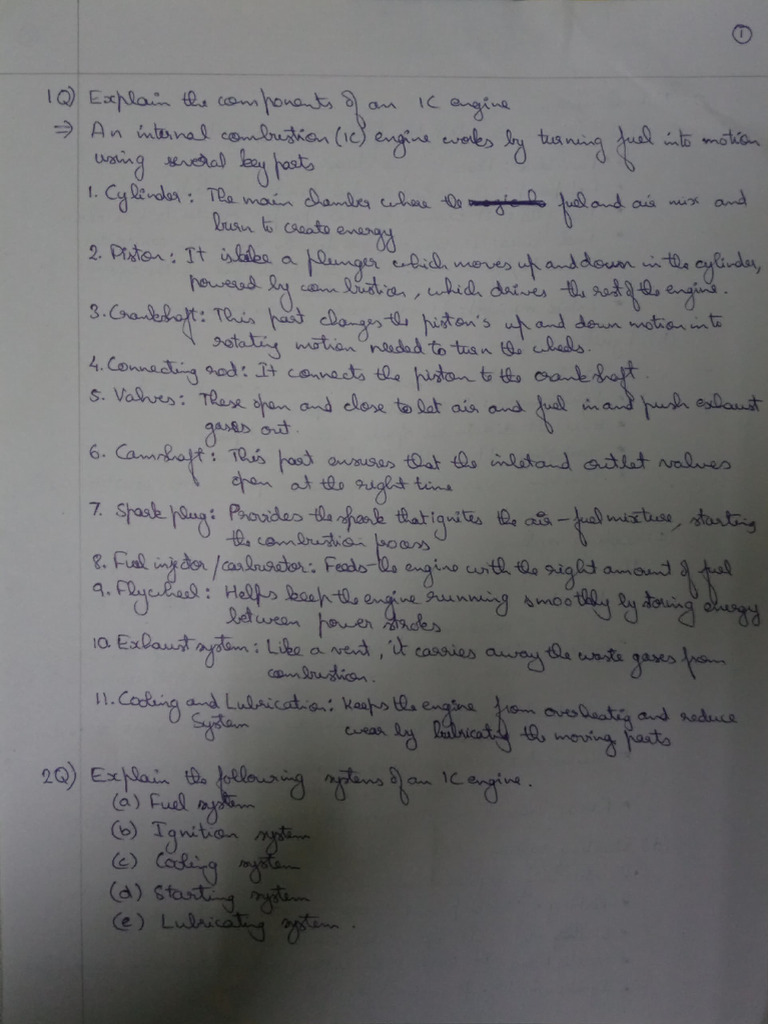 1
1Q) Explain the components of an IC engine
⇒ An internal combustion (IC) engine works by turning fuel into motion
using several key parts
1. Cylinder: The main chamber where the fuel and air mix and
burn to create energy
2. Piston: It is like a plunger which moves up and down in the cylinder,
powered by combustion, which drives the rest of the engine.
3. Crankshaft: This part changes the piston's up and down motion into
rotating motion needed to turn the wheels.
4. Connecting rod: It connects the piston to the crankshaft.
5. Valves: These open and close to let air and fuel in and push exhaust
gases out.
6. Camshaft: This part ensures that the inlet and outlet valves
open at the right time
7. Spark plug: Provides the spark that ignites the air-fuel mixture, starting
the combustion process
8. Fuel injector/carburetor: Feeds the engine with the right amount of fuel
9. Flywheel: Helps keep the engine running smoothly by storing energy
between power strokes
10. Exhaust system: Like a vent, it carries away the waste gases from
combustion.
11. Cooling and Lubrication: Keeps the engine from overheatig and reduce
System wear by lubricatig the moving parts
2Q) Explain the following systems of an IC engine.
(a) Fuel system
(b) Ignition system
(c) Cooling system
(d) Starting system
(e) Lubricating system.